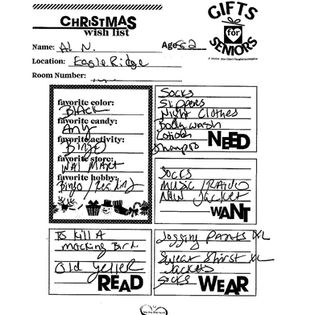 CHRISTMAS
wish list
GIFTS
for
SENIORS
Name: Al N.
Age: 82
Location: Eagle Ridge
Room Number:
favorite color:
Black
favorite candy:
Any
favorite activity:
Bingo
favorite store:
Wal Mart
favorite hobby:
Bingo / Reading
Socks
Slippers
Night Clothes
Body wash
Lotion
Shampoo
NEED
Socks
Music / Raido
New Jacket
WANT
To Kill A
Mocking Bird
Old Yeller
READ
Jogging Pants XL
Swear Shirst XL
Jackets
Socks
WEAR